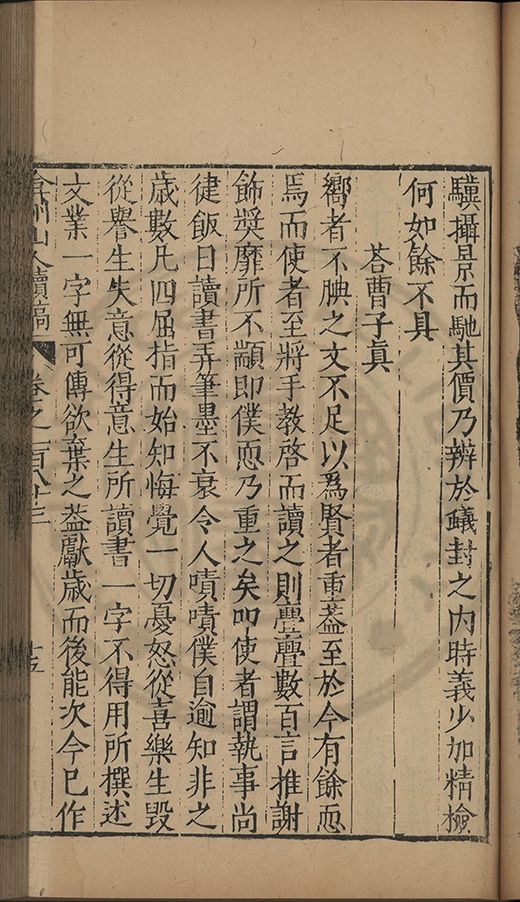 驥攝景而馳其價乃辨於蟻封之内時義少加精檢
何如餘不具
荅曹子真
嚮者不腆之文不足以為賢者重葢至於今有餘恧
焉而使者至將手教啓而讀之則疊疊數百言推謝
飾奬靡所不顓即僕恧乃重之矣叩使者謂執事尚
健飯日讀書弄筆墨不衰令人嘖嘖僕自逾知非之
歲數凡四屈指而始知悔覺一切憂怒從喜樂生毀
從譽生失意從得意生所讀書一字不得用所撰述
文業一字無可傳欲棄之葢獻歲而後能次今已作
弇州山人續稿 卷之一百八十三 十五